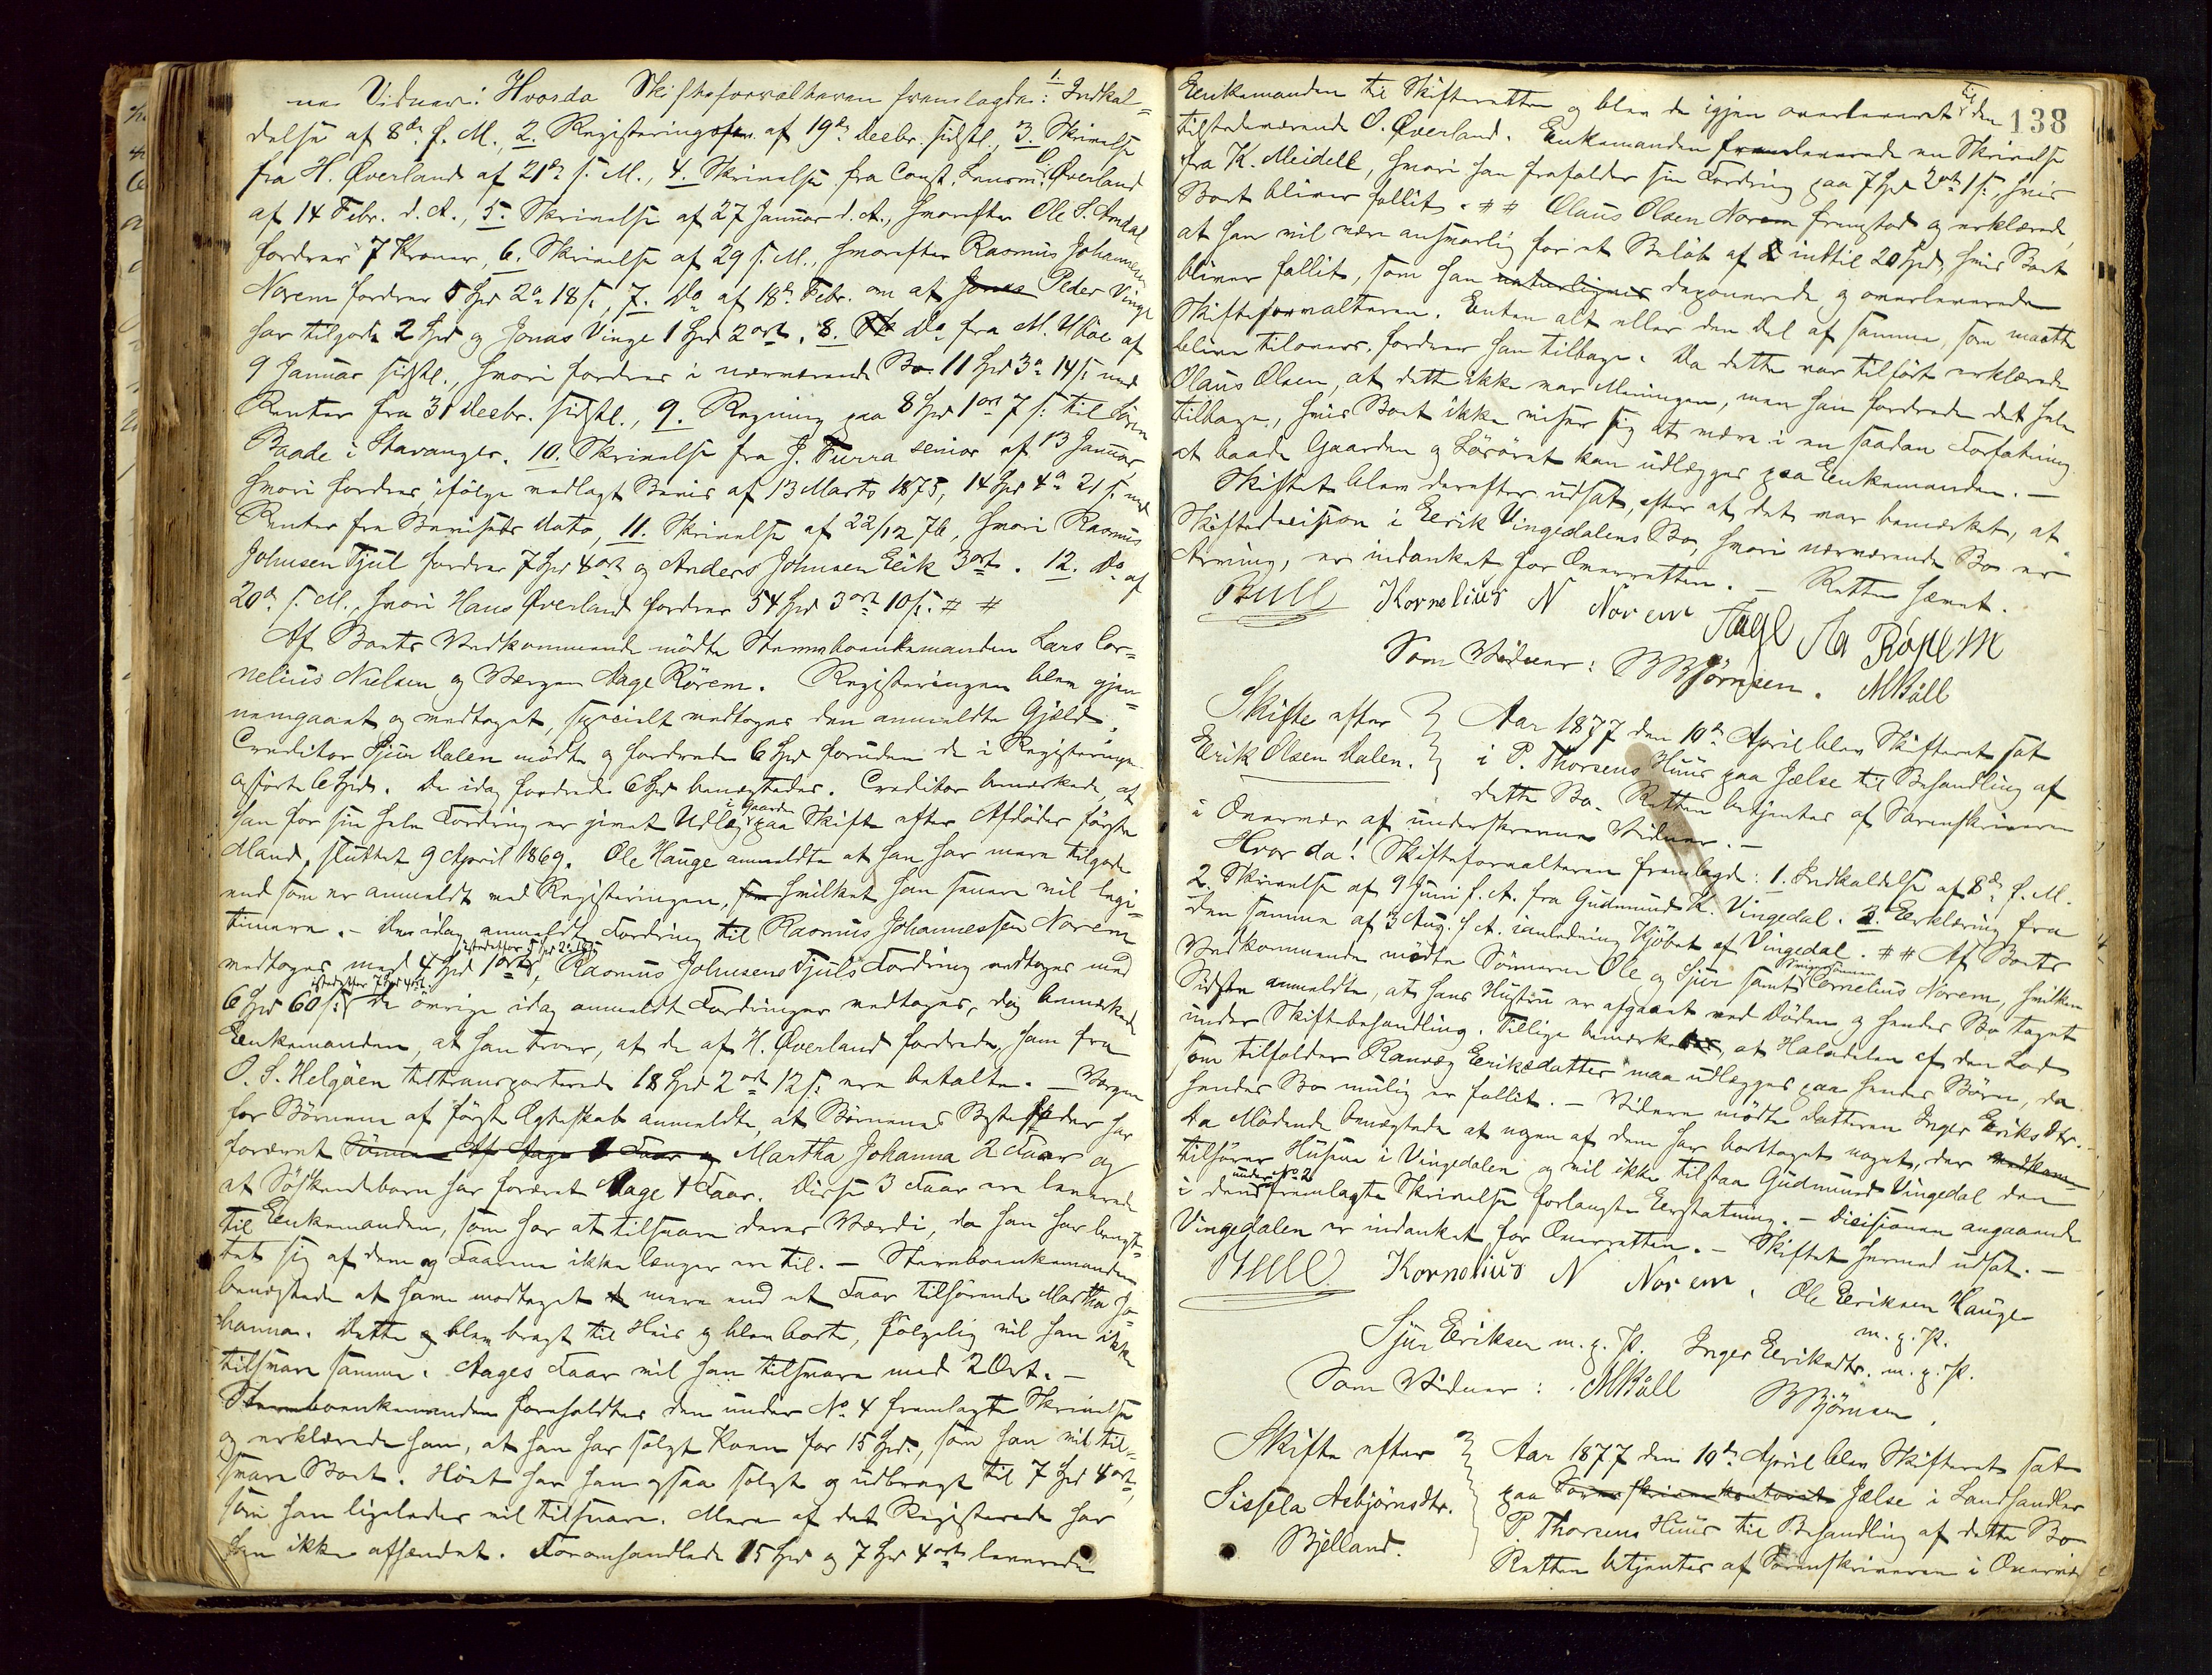 ner Vidner! Hvorda Skifteforvalteren fremlagde: 1. Indkal-
delse af 8de f. M., 2. Registeringsfor. af 19de Decbr. sidstl., 3. Skrivelse
fra H. Øverland af 21de s. M., 4. Skrivelse fra Const. Lensm. O. Øverland
af 14 Febr. d. A., 5. Skrivelse af 27 Januar d. A., hvorefter Ole S. Amdal
fordrer 7 Kroner, 6. Skrivelse af 29 s. M., hvorefter Rasmus Johannesen
Norem fordrer 5 Spd 2 ort 18 s., 7. Do af 18de Febr. om at Jonas Peder Vinge
har tilgode 2 Spd og Jonas Vinge 1 Spd 2 ort. 8. Do fra M. af
9 Januar sidstl., hvori fordres i nærværende Bo 11 Spd 3 o 14 s. med
Renter fra 31 Decbr. sidstl., 9. Regning paa 8 Spd 1 ort 7 s. til Sören
Baade i Stavanger. 10. Skrivelse fra J. Furra senior af 13 Januar,
hvori fordres ifölge vedlagt Bevis af 13 Marts 1875, 14 Spd 4 o 21 s. med
Renter fra Bevisets Dato, 11. Skrivelse af 22/12 76, hvori Rasmus
Johnsen Tjul fordrer 7 Spd 4 ort og Anders Johnsen Eeik 3 ort. 12. Do af
20de s. M., hvori Hans Øverland fordrer 54 Spd 3 ort 10 s. # #
Af Boets Vedkommende mödte Stervboenkemanden Lars Cor-
nelius Nielsen og Værgen Aage Rörem. Registeringen blev gjen-
nemgaaet og vedtaget, specielt vedtoges den anmeldte Gjæld.
Creditor Sjur Dalen mödte og fordrede 6 Spd foruden de i Registeringen
opförte 6 Spd. De idag fordrede 6 Spd benægtedes. Creditor bemærkede, at
han for sin hele Fordring er givet Udlæg i Gaarden paa Skifte efter Afdødes förste
Mand, sluttet 9 April 1869. Ole Hauge anmeldte at han har mere tilgode
end som er anmeldt ved Registeringen, som hvilket han senere vil legi-
timere. – Den idag anmeldte Fordring til Rasmus Johannessen Norem
vedtoges med 4 Spd 1 ort istedetfor 5 Spd 2 o 18 s., Rasmus Johnsens Tjuls Fordring vedtoges med
6 Spd 60 s. istedetfor 7 Spd 4 ort. De övrige idag anmeldte Fordringer vedtoges, dog bemærkede
Eenkemanden, at han troer, at de af H. Øverland fordrede, ham fra
O. S. Helgöen tiltransporterede 18 Spd 2 ort 12 s. ere betalte. – Værgen
for Börnene af förste Ægteskab anmeldte, at Börnenes Bestefader har
foræret Martha Johanna 2 Faar og
at Söskendebarn har foræret Aage 1 Faar. Disse 3 Faar ere leverede
til Eenkemanden, som har at tilsvare deres Værdi, da han har benyt-
tet sig af dem og Faarene ikke længer ere til. – Stervboenkemanden
benægtede at have modtaget mere end et Faar tilhörende Martha Jo-
hanna. Dette blev bragt til Huus og blev borte, fölgelig vil han ikke
tilsvare samme. Aages Faar vil han tilsvare med 2 Ort. –
Stervboenkemanden foreholdtes den under No 4 fremlagte Skrivelse
og erklærede han, at han har solgt Koen for 15 Spd., som han vil til-
svare Boet. Höet har han ogsaa solgt og udbragt til 7 Spd 4 ort,
som han ligeledes vil tilsvare. Mere af det Registerede har
han ikke afhændet. Foromhandlede 15 Spd og 7 Spd 4 ort leverede
138
Eenkemanden til Skifteretten og blev de igjen overleveret til den
tilstedeværende O. Øverland. Enkemanden fremleverede en Skrivelse
fra K. Meidell, hvori han frafalder sin Fordring paa 7 Spd 2 ort 1 s. hvis
Boet bliver fallit. # # Olaus Olsen Norem fremstod og erklærede,
at han vil være ansvarlig for et Belöb af indtil 20 Spd, hvis Boet
bliver fallit, som han deponerede og overleverede
Skifteforvalteren. Enten alt eller den Del af samme, som maatte
blive tilovers, fordrer han tilbage. Da dette var tilfört erklærede
Olaus Olsen, at dette ikke var Meningen, men han fordrede det hele
tilbage, hvis Boet ikke viser sig at være i en saadan Forfatning,
at baade Gaarden og Lösöret kan udlægges paa Eenkemanden. –
Skiftet blev derefter udsat, efter at det var bemærket, at
Skiftedecision i Eerik Vingedalens Bo, hvori nærværende Bo er
Arving, er indanket for Overretten. – Retten hævet.
Bull Kornelius N Norem Aage Aa Röꞃem
Som Vidner: BBjörnsen. MBüll
Skifte efter Eerik Olsen Dalen.
Aar 1877 den 10de April blev Skifteret sat
i P. Thorsens Huus paa Jælse til Behandling af
dette Bo. Retten betjentes af Sorenskriveren
i Overvær af underskrevne Vidner. –
Hvor da! Skifteforvalteren fremlagde: 1. Indkaldelse af 8de f. M.
2. Skrivelse af 9 Juni f. A. fra Gudmund K. Vingedal. 3. Eerklæring fra
den samme af 3 Aug. f. A. i anledning Kjöbet af Vingedal. # # Af Boets
Vedkommende mödte Sönnerne Ole og Sjur samt Svigersönnen Cornelius Norem, hvilken
Sidste anmeldte, at hans Hustru er afgaaet ved Döden og hendes Bo taget
under Skiftebehandling. Tillige bemærkedes, at Halvdelen af den Lod
som tilfalder Ranveg Eeriksdatter maa udlægges paa hendes Börn, da
hendes Bo mulig er fallit. – Videre mödte Datteren Inger Eeriks Dtr.
De Mödende benægtede at nogen af dem har borttaget noget, der
tilhörer Husene i Vingedalen og vil ikke tilstaa Gudmund Vingedal den
i den under No 2 fremlagte Skrivelse forlangte Eerstatning. – Decisionen angaaende
Vingedalen er indanket for Overretten. – Skiftet hermed udsat. –
Bull Kornelius N Norem. Ole Eeriksen Hauge
m. p. P.
Sjur Eeriksen m. p. P. Inger Eeriksdtr. m. p. P.
Som Vidner: MBüll BBjörnsen.
Skifte efter Sissela Asbjörnsdtr. Bjelland.
Aar 1877 den 10de April blev Skifteret sat
paa Sorenskriverkontoret Jælse i Landhandler
P. Thorsens Huus til Behandling af dette Bo
Retten betjentes af Sorenskriveren i Overvær